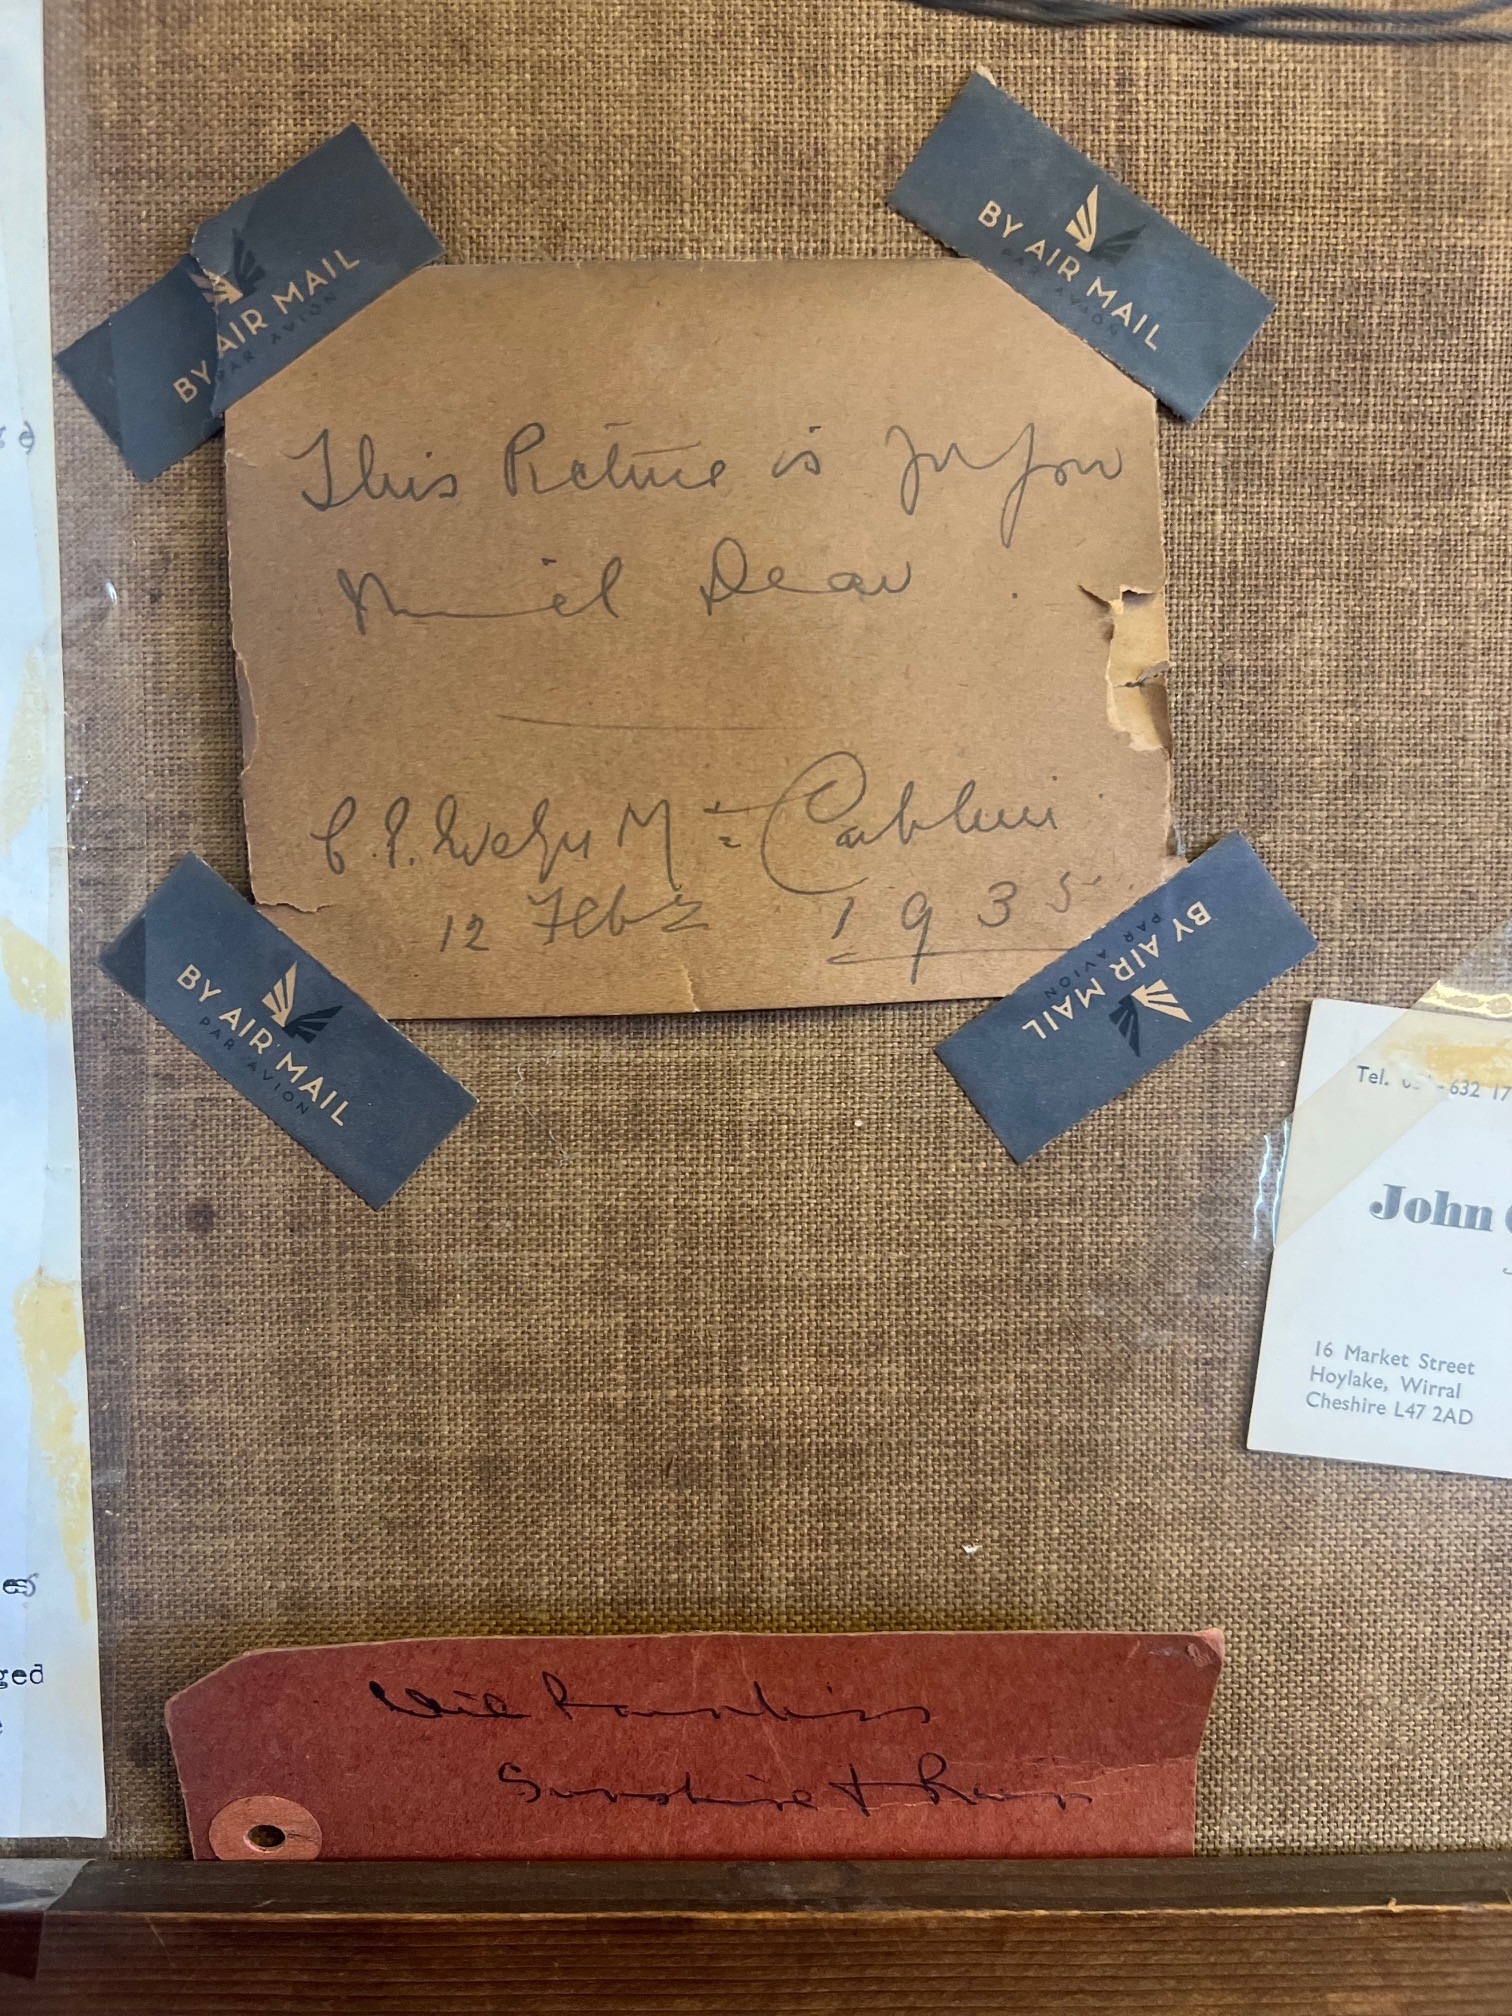 BY AIR MAIL
PAR AVION
BY AIR MAIL
PAR AVION
This Picture is for you
Muriel Dear.
12 Feb 1935
BY AIR MAIL
PAR AVION
BY AIR MAIL
PAR AVION
Tel. 632 17
John
16 Market Street
Hoylake, Wirral
Cheshire L47 2AD
ged
Sunshine & Rain